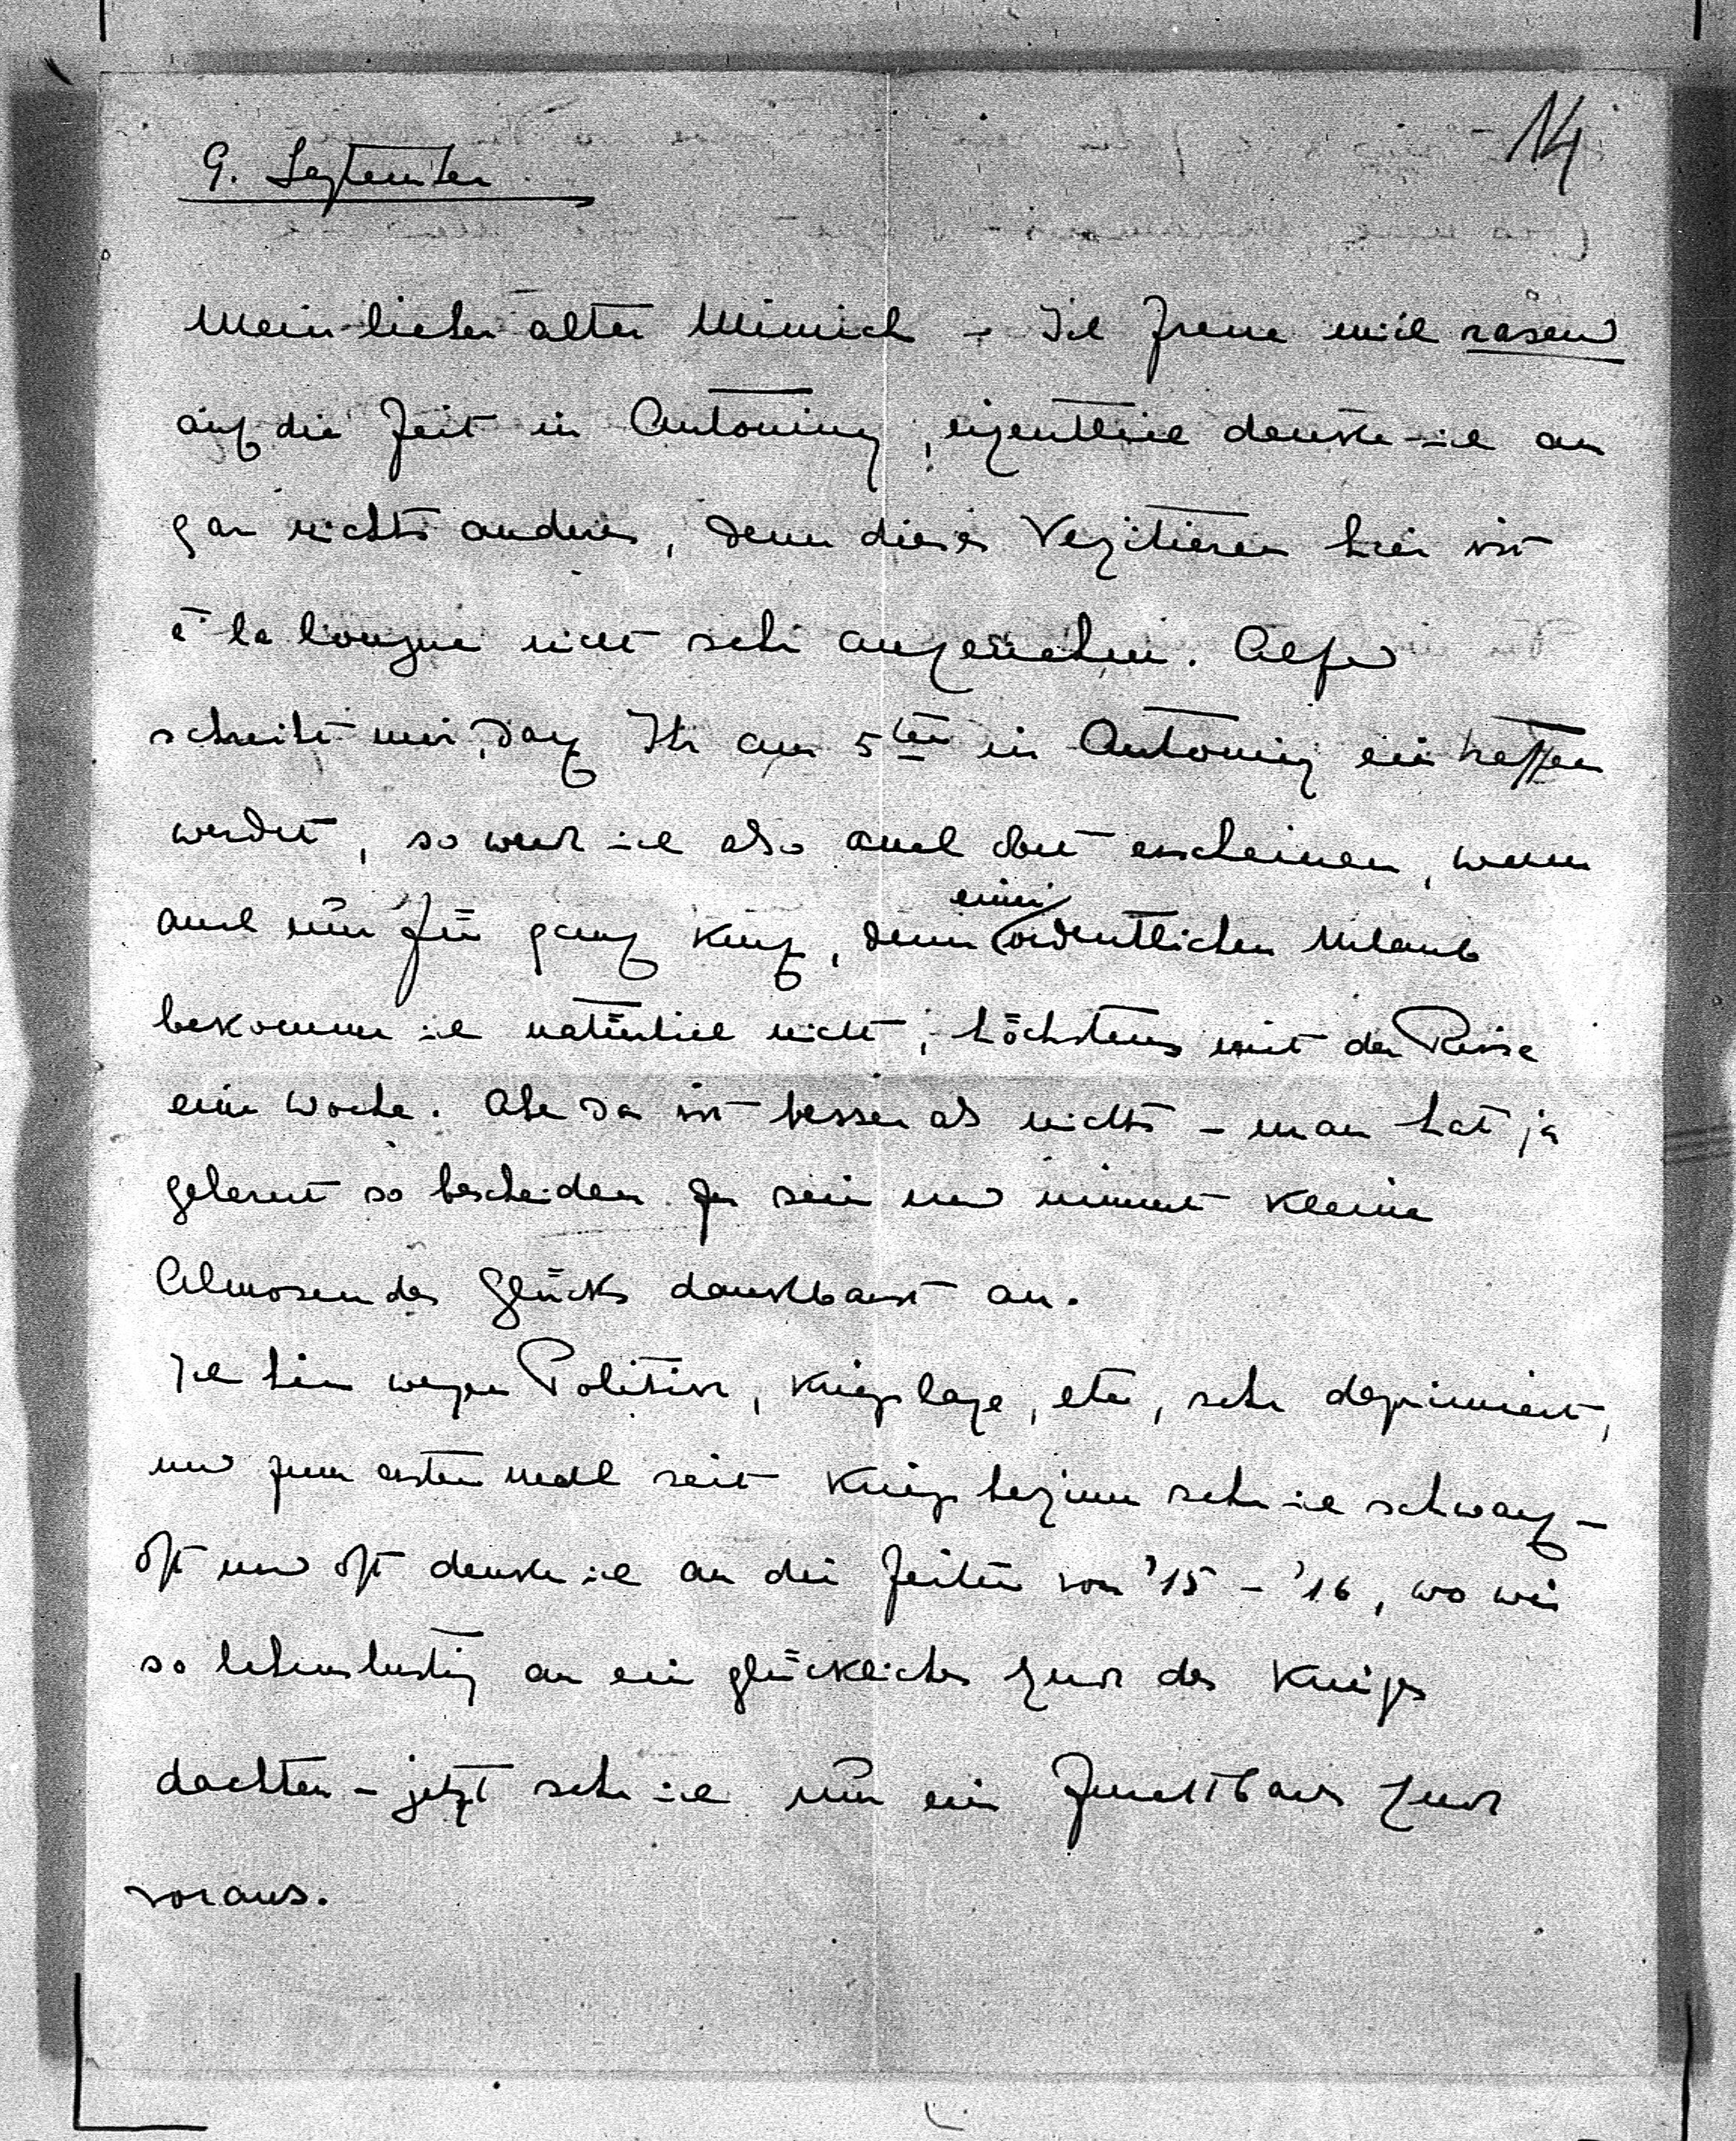 14
9. September
Mein lieber alter Mimich – Ich freue mich rasend
auf die Zeit in Antoniny, eigentlich denke ich an
gar nichts anderes, denn dieses Vegitieren hier ist
à la longue nicht sehr angenehm. Alfred
schreibt mir, daß Ihr am 5ten in Antoniny eintreffen
werdet, so werd ich also auch dort erscheinen, wenn
auch nur für ganz kurz, denn einen ordentlichen Urlaub
bekomme ich natürlich nicht, höchstens mit der Reise
eine Woche. Aber das ist besser als nichts – man hat ja
gelernt so bescheiden zu sein und nimmt kleine
Almosen des Glücks dankbarst an.
Ich bin wegen Politik, Kriegslage, etc, sehr deprimiert,
und zum ersten mal seit Kriegsbeginn sehe ich schwarz –
oft und oft denke ich an die Zeiten von '15 – '16, wo wir
so lebenslustig an ein glückliches Ende des Krieges
dachten – jetzt sehe ich nur ein furchtbares Ende
voraus.